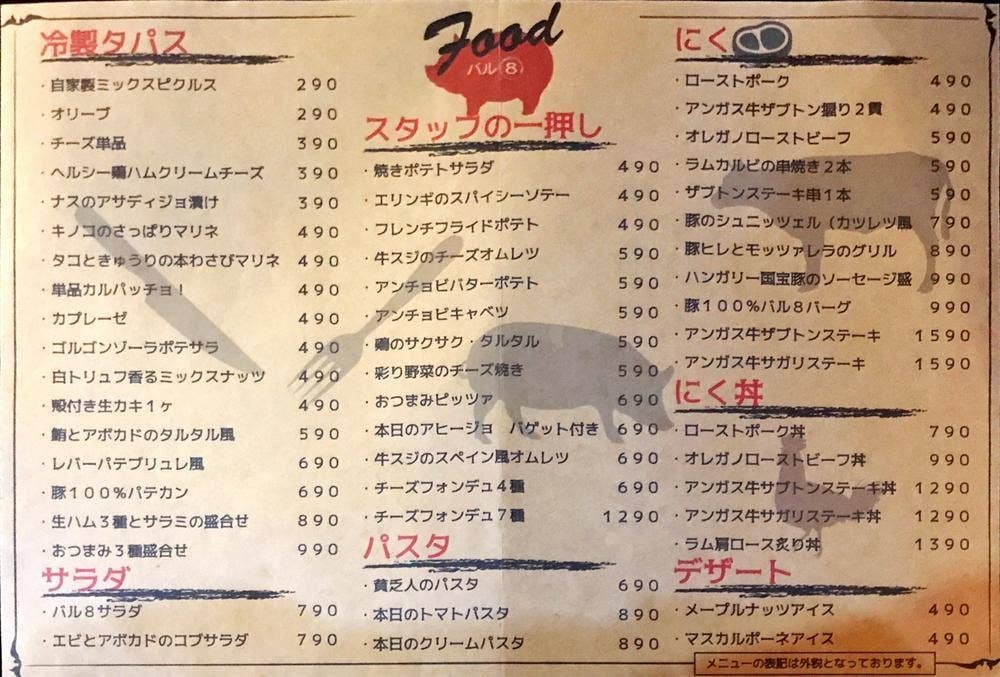 Food
バル⑧
冷製タパス
・自家製ミックスピクルス 290
・オリーブ 290
・チーズ単品 390
・ヘルシー鶏ハムクリームチーズ 390
・ナスのアサディジョ漬け 390
・キノコのさっぱりマリネ 490
・タコときゅうりの本わさびマリネ 490
・単品カルパッチョ! 490
・カプレーゼ 490
・ゴルゴンゾーラポテサラ 490
・白トリュフ香るミックスナッツ 490
・殻付き生カキ1ヶ 490
・鮪とアボカドのタルタル風 590
・レバーパテブリュレ風 690
・豚100%パテカン 690
・生ハム3種とサラミの盛合せ 890
・おつまみ3種盛合せ 990
サラダ
・バル8サラダ 790
・エビとアボカドのコブサラダ 790
スタッフの一押し
・焼きポテトサラダ 490
・エリンギのスパイシーソテー 490
・フレンチフライドポテト 490
・牛スジのチーズオムレツ 590
・アンチョビバターポテト 590
・アンチョビキャベツ 590
・鶏のサクサク・タルタル 590
・彩り野菜のチーズ焼き 590
・おつまみピッツァ 690
・本日のアヒージョ バゲット付き 690
・牛スジのスペイン風オムレツ 690
・チーズフォンデュ4種 690
・チーズフォンデュ7種 1290
パスタ
・貧乏人のパスタ 690
・本日のトマトパスタ 890
・本日のクリームパスタ 890
にく
・ローストポーク 490
・アンガス牛ザブトン握り2貫 490
・オレガノローストビーフ 590
・ラムカルビの串焼き2本 590
・ザブトンステーキ串1本 590
・豚のシュニッツェル(カツレツ風 790
・豚ヒレとモッツァレラのグリル 890
・ハンガリー国宝豚のソーセージ盛 990
・豚100%バル8バーグ 990
・アンガス牛ザブトンステーキ 1590
・アンガス牛サガリステーキ 1590
にく丼
・ローストポーク丼 790
・オレガノローストビーフ丼 990
・アンガス牛ザブトンステーキ丼 1290
・アンガス牛サガリステーキ丼 1290
・ラム肩ロース炙り丼 1390
デザート
・メープルナッツアイス 490
・マスカルポーネアイス 490
メニューの表記は外税となっております。